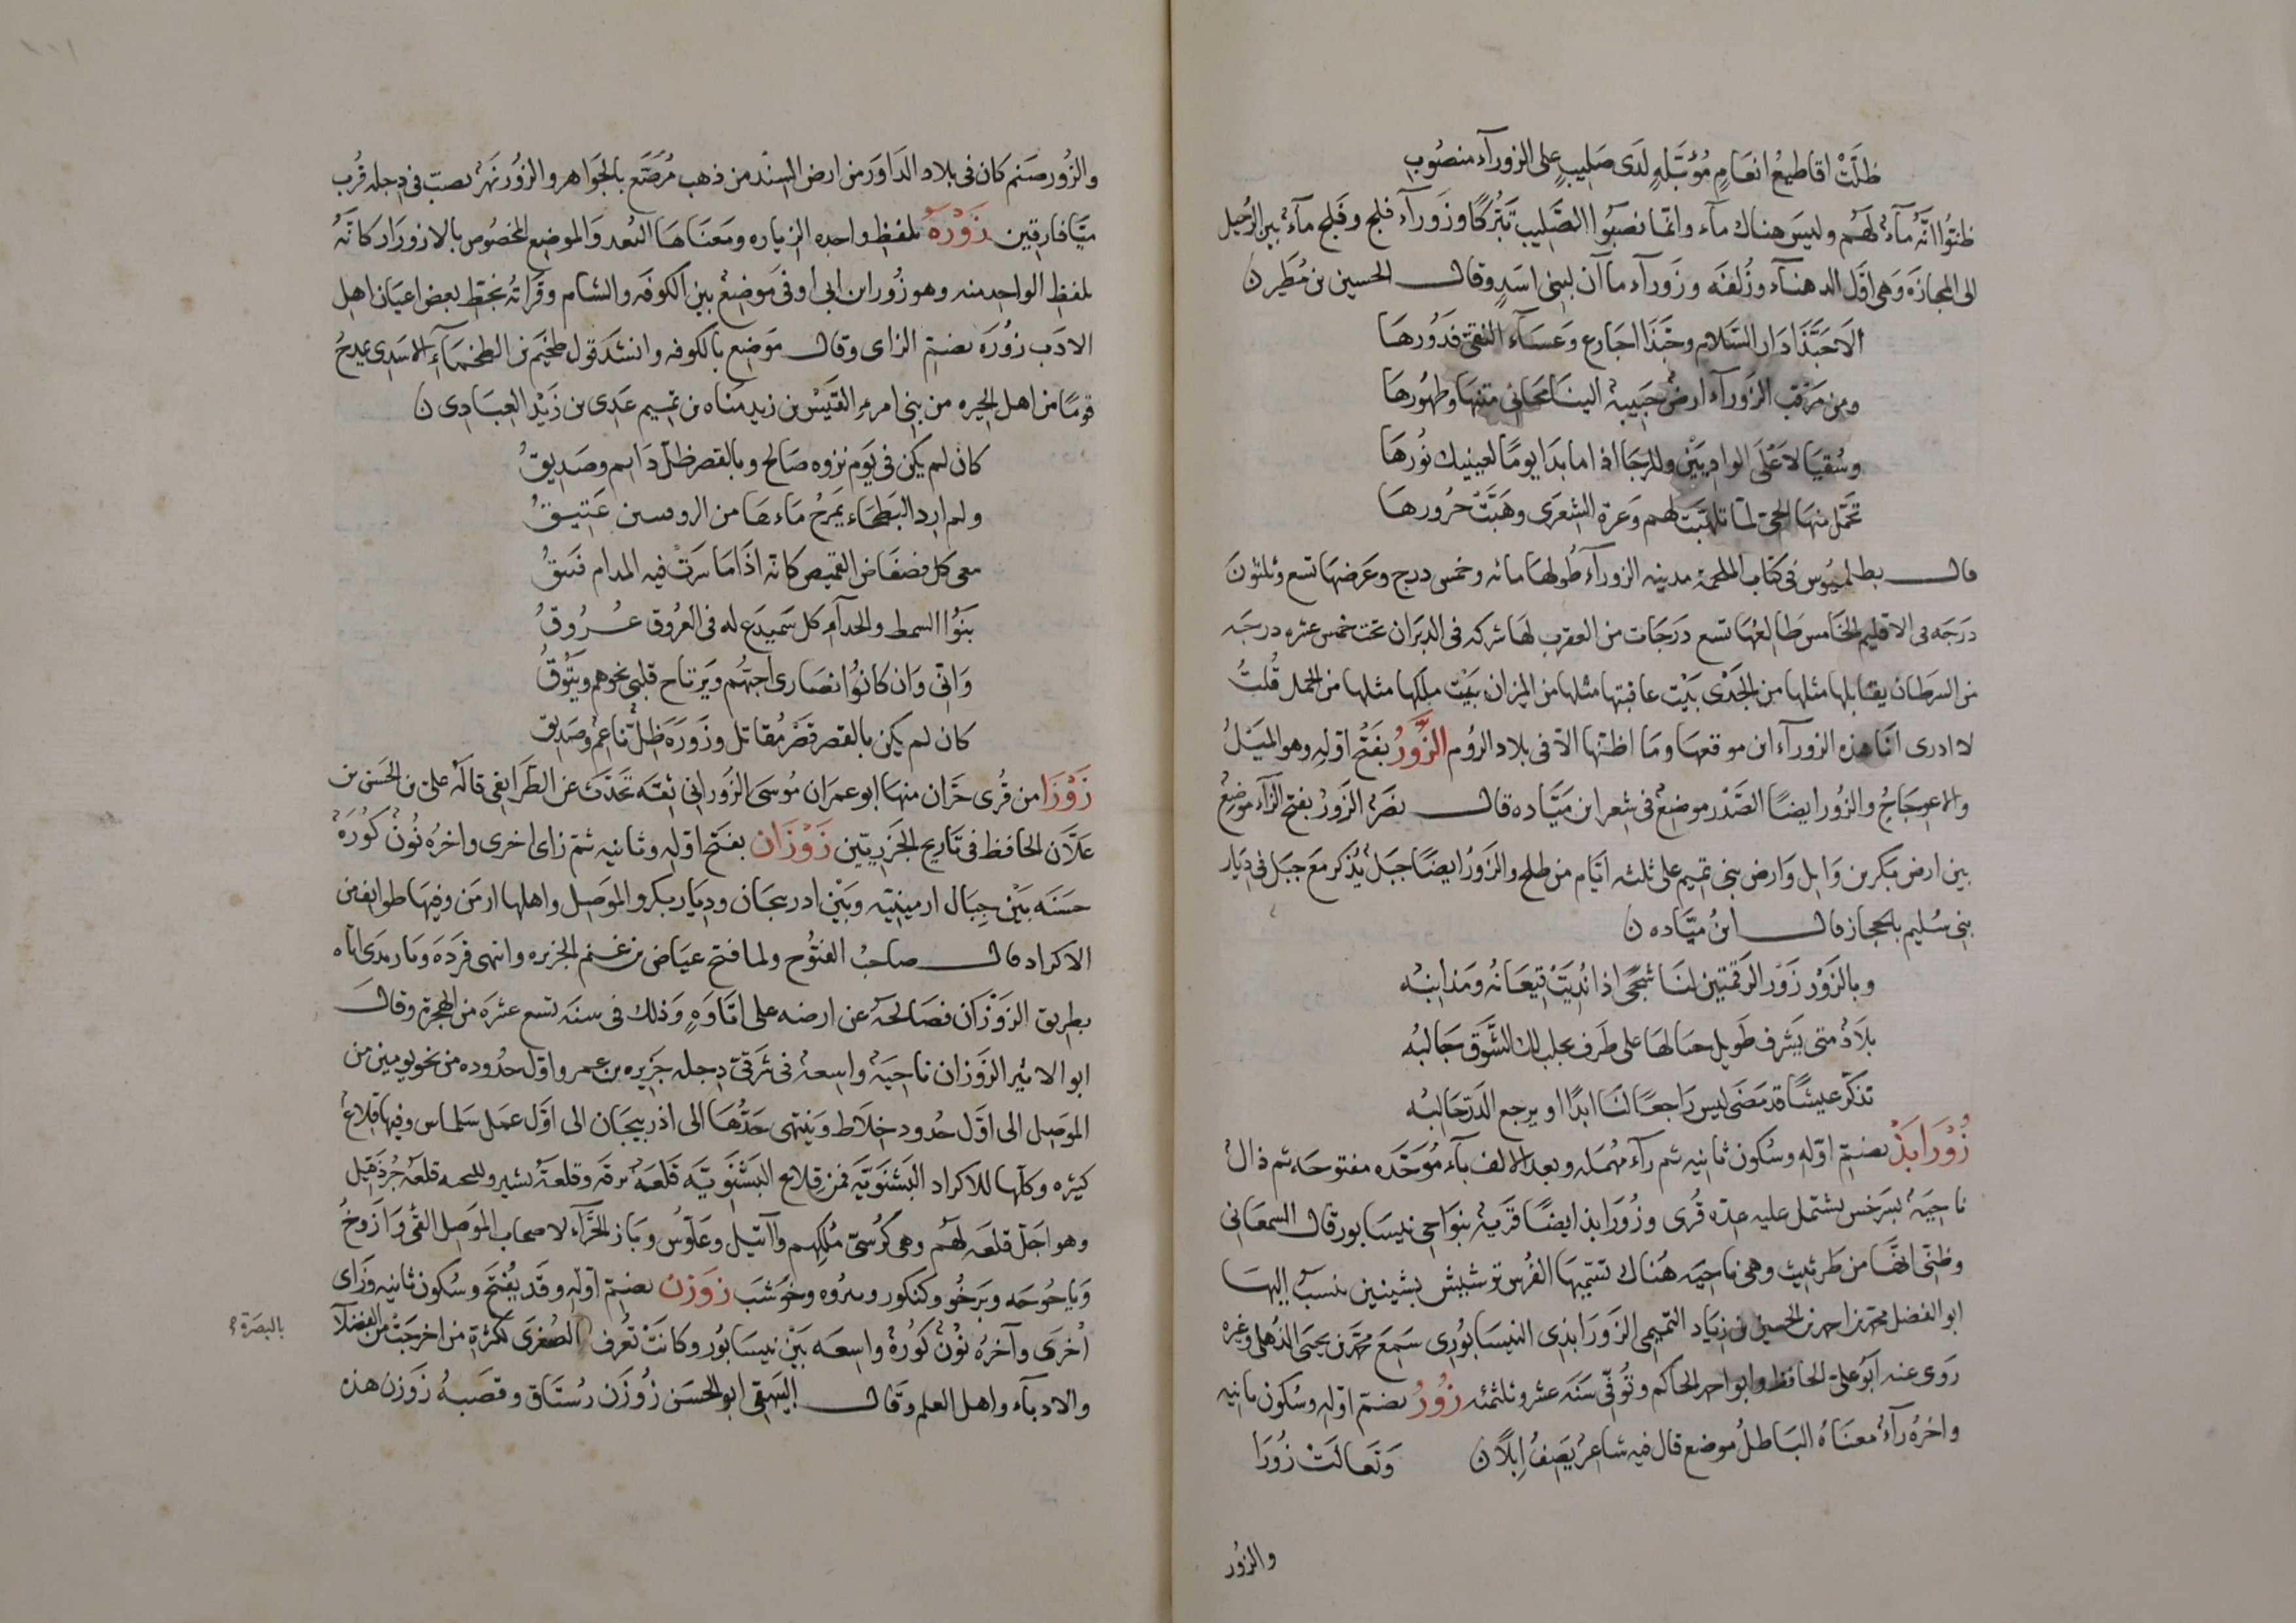 ظلّت اقاطيع انعام مؤبّلة لدى صليب على الزورآء منصوب
ظنّوا انّه مآء لهم وليس هناك مآء وانما نصبوا الصّليب تبرّكا وزورآء فلج وفلج مآء بين الرحيل
الى المجازة وهى اوّل الدهنآء وزلفة وزورآء ماآن لبنى اسد وقال الحسين بن مطير ن
الا حبّذا دار السّلام وحبّذا اجارع وعسآء النقىّ فدورها
ومن مرقب الزورآء ارض حبيبة الينا محانى متنها وظهورها
وسقيا لاعلى الواديين وللرجا اذا ما بدا يوما لعينيك نورها
تحمّل منها الحىّ لمّا تلهّبت لهم وعرة الشعرى وهبّت حرورها
قال بطلميوس فى كتاب الملحمة مدينه الزورآء طولها مائه وخمس درج وعرضها تسع وثلثون
درجه فى الاقليم الخامس طالعها تسع درجات من العقرب لها شركه فى الدبران تحت خمس عشره درجه
من السرطان يقابلها مثلها من الجدى بيت عاقبتها مثلها من الميزان بيت ملكها مثلها من الحمل قلت
لا ادرى انا هذه الزورآء اين موقعها وما اظنها الا فى بلاد الروم الزّور بفتح اوّله وهو الميل
والاعوجاج والزور ايضا الصّدر موضع فى شعر ابن ميّاده قال نصر الزور بفتح الزآء موضع
بين ارض بكر بن وايل وارض بنى تميم على ثلثه ايّام من طلح والزور ايضا جبل يذكر مع جبل فى ديار
بنى سليم بالحجاز قال ابن ميّاده ن
وبالزور زور الرقمتين لنا شجى اذا نديت قيعانه ومذانبه
بلاد متى يشرف طويل جبالها على طرف يجلب لك الشّوق جالبه
تذكّر عيشا قد مضى ليس راجعا لنا ابدا او يرجع الدرّ حالبه
زورابذ بضمّ اوّله وسكون ثانيه ثم رآء مهمله وبعد الالف بآء موحّده مفتوحه ثم ذال
ناحية بسرخس يشتمل عليه عدّه قرى وزورابذ ايضا قرية بنواحى نيسابور قال السمعانى
وظنّى انها من طرثيث وهى ناحيه هناك تسمّيها الفرس ترشيش بشينين ينسب اليها
ابو الفضل محمد بن احمد بن الحسين بن زياد التميمى الزورابذى النيسابورى سمع محمد بن يحيى الذهلى وغيره
روى عنه ابو على الحافظ وابو احمد الحاكم وتوفّى سنه عشر وثلثمئه زور بضمّ اوّله وسكون ثانيه
واخره رآء معناه الباطل موضع قال فيه شاعر يصف ابلا ن وتعالت زورا
والزور
والزور صنم كان فى بلاد الداور من ارض السند من ذهب مرصّع بالجواهر والزور نهر يصبّ فى دجله قرب
ميّافارقين زورة بلفظ واحده الزياره ومعناها البعد والموضع المخصوص بالازورار كانّه
بلفظ الواحد منه وهو زور ابن ابى اوفى موضع بين الكوفه والشام وقراته بخطّ بعض اعيان اهل
الادب زوره بضمّ الزاى وقال موضع بالكوفه وانشد قول طخيم بن الطخمآء الاسدى يمدح
قوما من اهل الحيره من بنى امرء القيس بن زيد مناه بن تميم عدى بن زيد العبادى ن
كان لم يكن فى يوم نزوه صالح وبالقصر ظلّ دايم وصديق
ولم ارد البطحاء يمرج ماءها من عتيق
معى كل فضفاض القميص كانه اذا ما سرت فيه المدام فنيق
بنوا السمط والحدآء كل سميدع له فى العروق عروق
وانّى وان كانوا نصارى احبّهم ويرتاح قلبى نحوهم ويتوق
كان لم يكن بالقصر قصر مقاتل وزوره ظلّ ناعم وصديق
زوزا من قرى حرّان منها ابو عمران موسى الزورانى ثقة تحدّث عن الطرايفى قاله على بن الحسن بن
علّان الحافظ فى تاريخ الجزريّين زوزان بفتح اوّله وثانيه ثم زاى اخرى واخره نون كورة
حسنه بين جبال ارمينيه وبين ادربيجان وديار بكر والموصل واهلها ارمن وفيها طوايف من
الاكراد قال صاحب الفتوح ولما فتح عياض بن غنم الجزيره وانتهى قرده وبازبدى اتاه
بطريق الزوزان فصالحه عن ارضه على اتاوه وذلك فى سنه تسع عشره من الهجرة وقال
ابو الاثير الزوزان ناحية واسعة فى شرقىّ دجله جزيره بن عمر واوّل حدوده من نحو يومين من
الموصل الى اوّل حدود خلاط وينتهى حدّها الى اذربيجان الى اوّل عمل سلماس وفيها قلاع
كثيره وكلّها للاكراد البشنويّه فمن قلاع البشنويّه قلعه برقه وقلعة بشير وللبختيه قلعه جرذقيل
وهو اجلّ قلعه لهم وهى كرسىّ ملكهم وآتيل وعلوس وباز الحمرآء لاصحاب الموصل القى وارزوخ
وباخوخه وبرخو وكنكور ونيروه وخوشب زوزن بضمّ اوّله وقد يفتح وسكون ثانيه وزاى
اخرى وآخره نون كورة واسعه بين نيسابور وكانت تعرف الصغرى لكثرة من اخرجت من الفضلآ
بالبصرة
والادبآء واهل العلم وقال البيهقى ابو الحسن زوزن رستاق وقصبه زوزن هذه